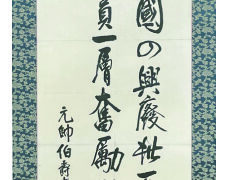 國の興廢此一
員一層奮勵
元帥伯